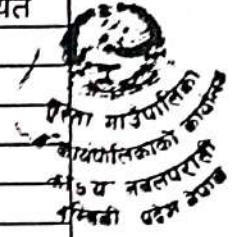 यत
गाउँपालिका
कार्यपालिकाको कार्यालय
नवलपरासी
प्रदेश नेपाल